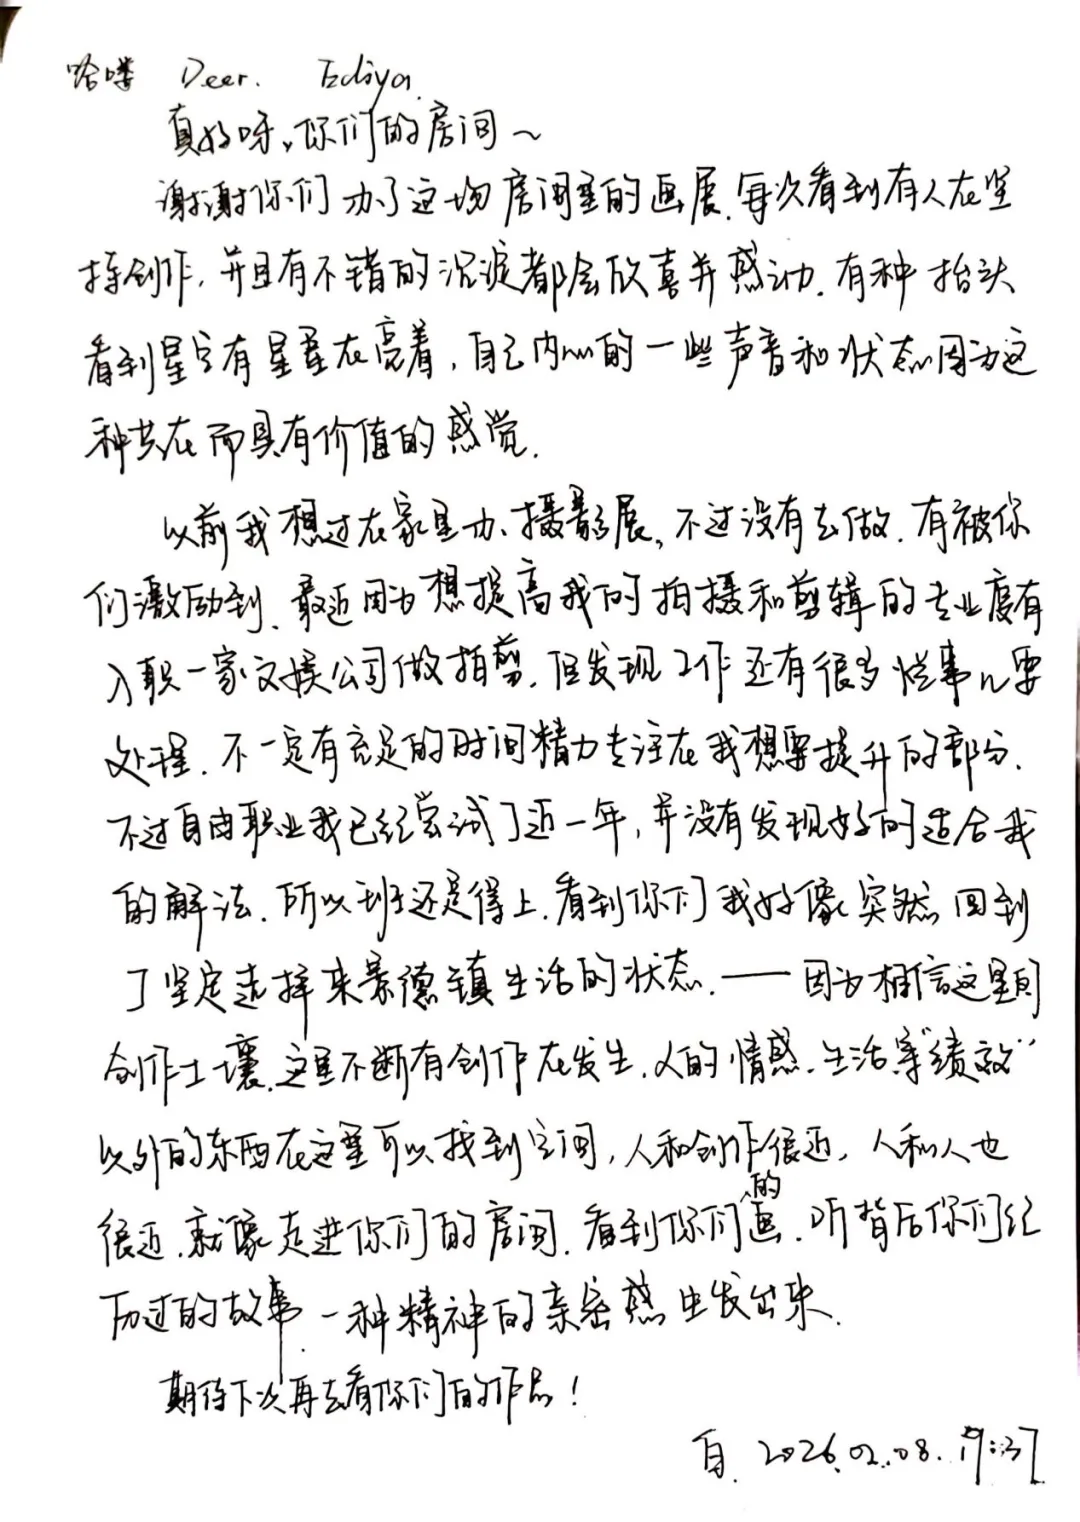 哈喽 Deer. Ediya.
真好呀,你们的房间~
谢谢你们办了这场房间里的画展.每次看到有人在坚
持创作,并且有不错的沉淀都会欣喜并感动.有种抬头
看到星空有星星在亮着,自己内心的一些声音和状态因为这
种共在而具有价值的感觉.
以前我想过在家里办摄影展,不过没有去做.有被你
们激励到.最近因为想提高我的拍摄和剪辑的专业度有
入职一家文娱公司做拍剪.但发现工作还有很多烂事儿要
处理.不一定有充足的时间精力专注在我想要提升的部分.
不过自由职业我已经尝试了近一年,并没有发现好的适合我
的解法.所以班还是得上.看到你们我好像突然回到
了坚定选择来景德镇生活的状态.——因为相信这里的
创作土壤.这里不断有创作在发生.人的情感.生活等"绩效"
以外的东西在这里可以找到空间,人和创作很近,人和人也
很近.就像走进你们的房间.看到你们的画.听背后你们经
历过的故事.一种精神的亲密感由发出来.
期待下次再去看你们的作品!
2026.02.08.19:37